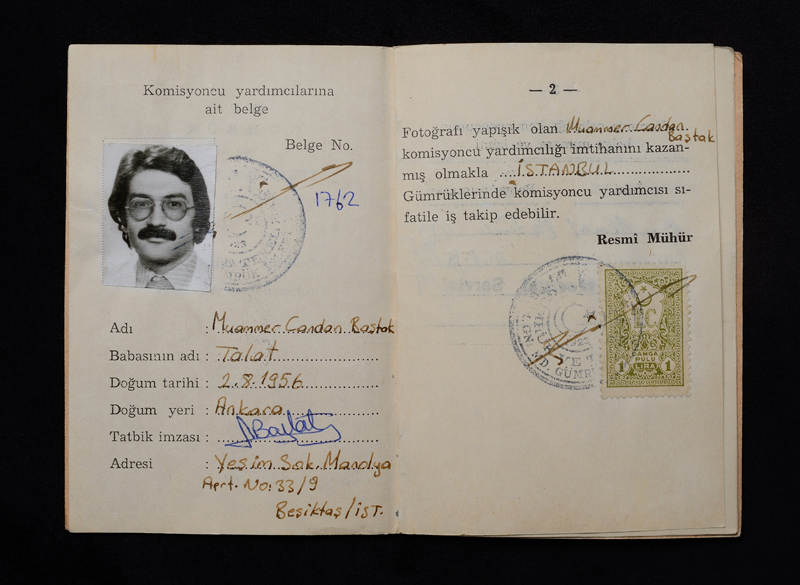 Komisyoncu yardımcılarına
ait belge
Belge No.
1762
Adı : Muammer Candan Baştak
Babasının adı : Talat
Doğum tarihi : 2.8.1956
Doğum yeri : Ankara
Tatbik imzası :
Adresi : Yeşim Sok. Manolya
Aprt. No: 33/9
Beşiktaş/İST.
— 2 —
Fotoğrafı yapışık olan Muammer Candan
Baştak
komisyoncu yardımcılığı imtihanını kazan-
mış olmakla İSTANBUL
Gümrüklerinde komisyoncu yardımcısı sı-
fatile iş takip edebilir.
Resmî Mühür
T.C.
DAMGA
PULU
1 LİRA 1